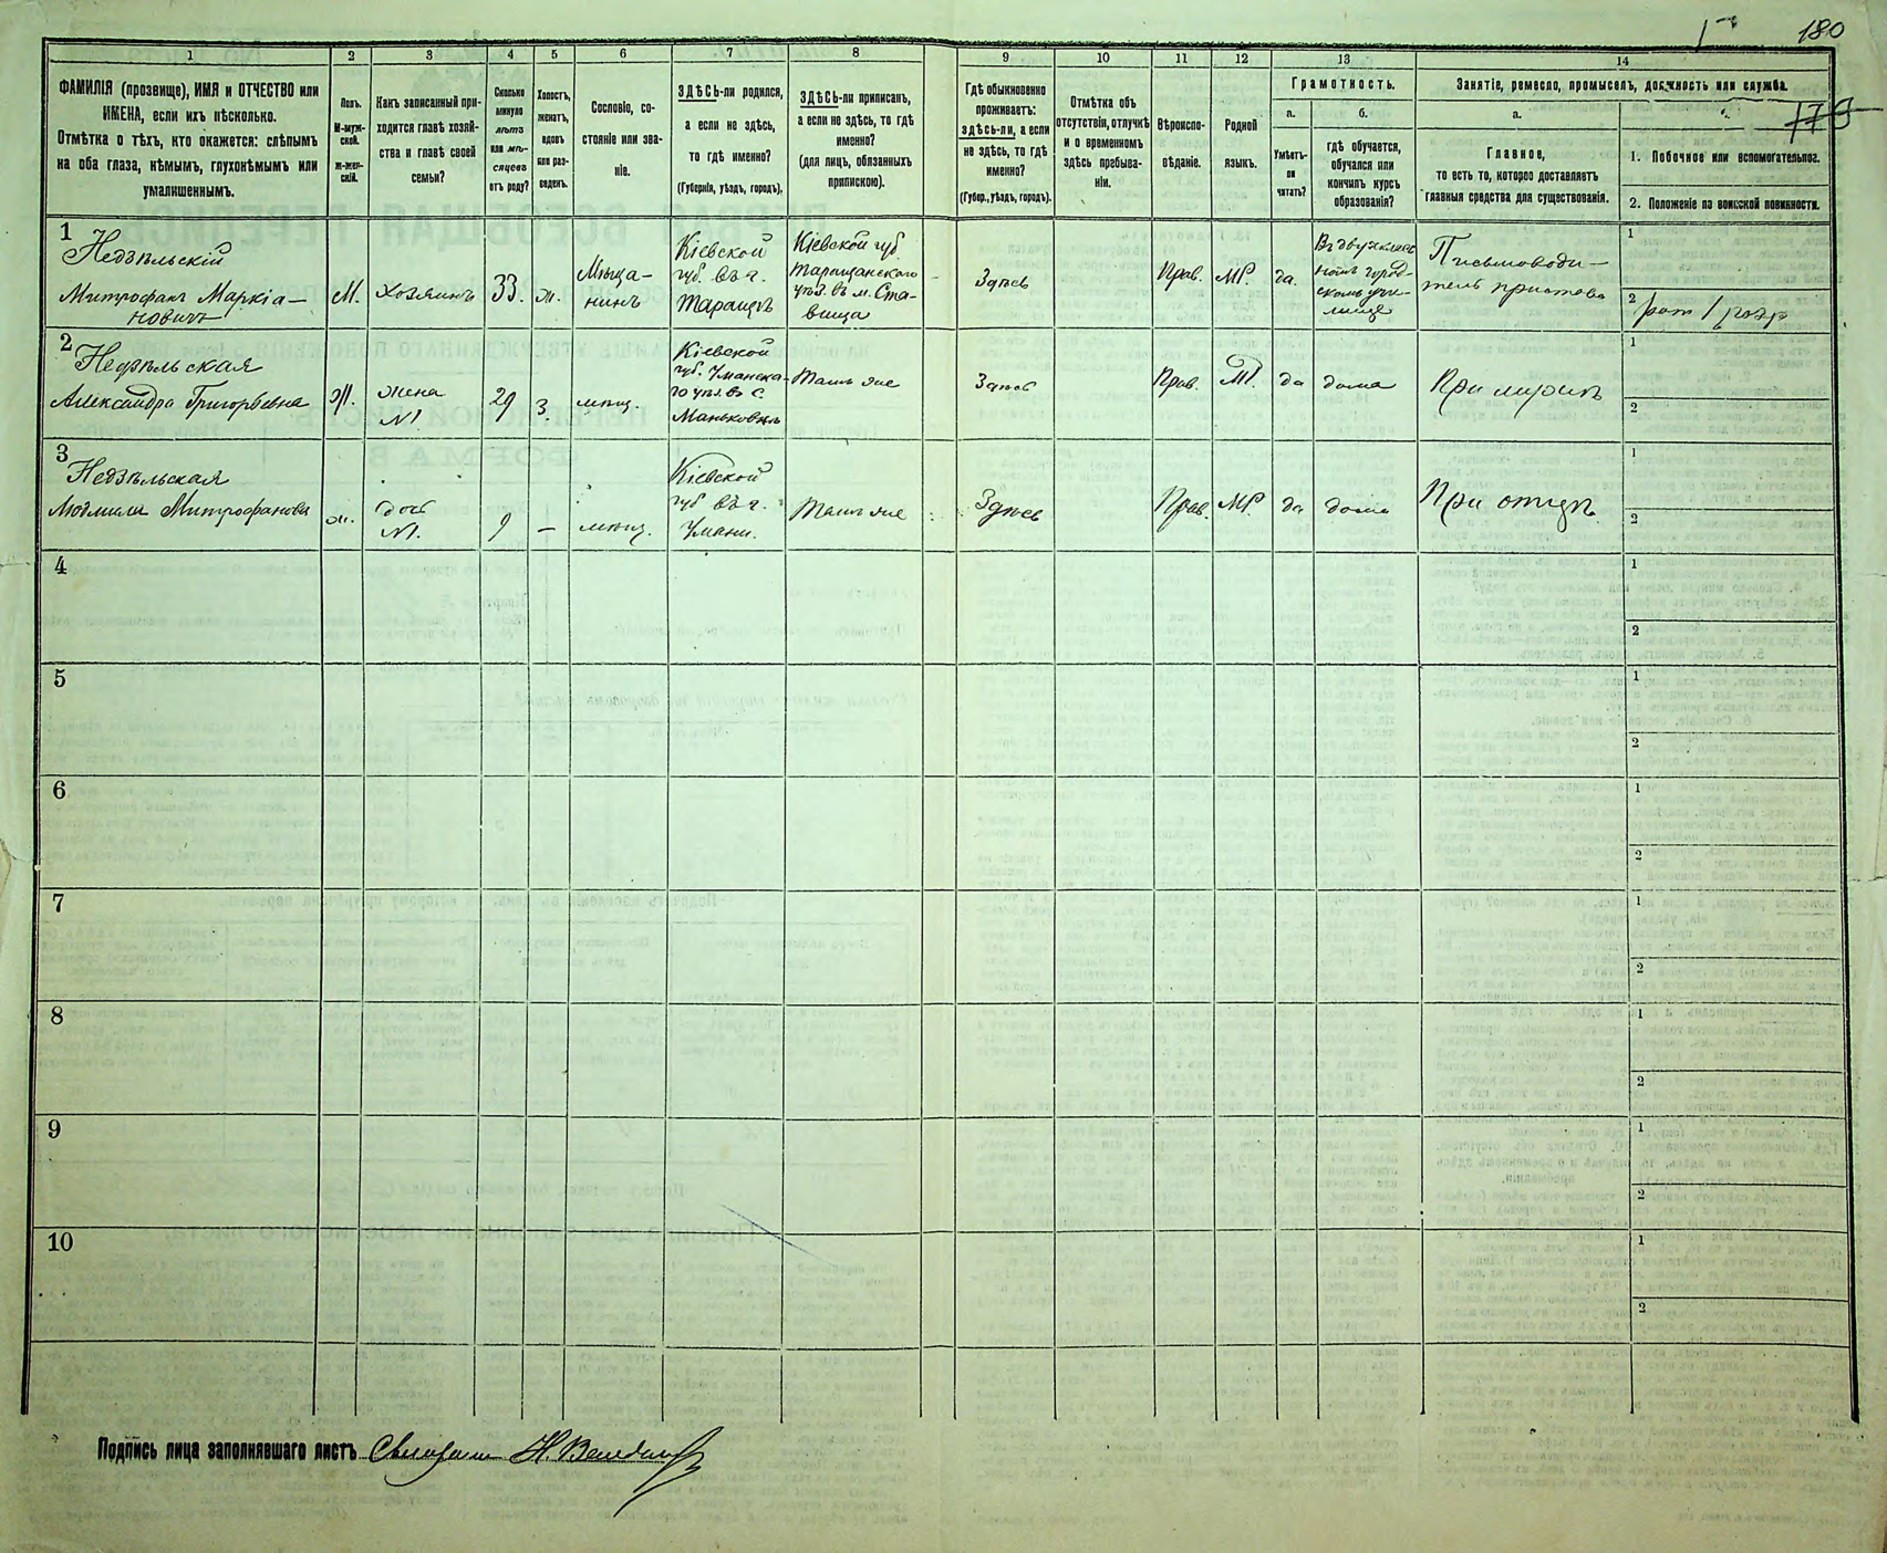 180
1 2 3 4 5 6 7 8 9 10 11 12 13 14
ФАМИЛІЯ (прозвище), ИМЯ и ОТЧЕСТВО или
ИМЕНА, если ихъ нѣсколько.
Отмѣтка о тѣхъ, кто окажется: слѣпымъ
на оба глаза, нѣмымъ, глухонѣмымъ или
умалишеннымъ.
Полъ.
М-муж-
ской.
Ж-жен-
скій.
Какъ записанный при-
ходится главѣ хозяй-
ства и главѣ своей
семьи?
Сколько
минуло
лѣтъ
или мѣ-
сяцевъ
отъ роду?
Холостъ,
женатъ,
вдовъ
или раз-
веденъ.
Сословіе, со-
стояніе или зва-
ніе.
ЗДѢСЬ-ли родился,
а если не здѣсь,
то гдѣ именно?
(Губернія, уѣздъ, городъ).
ЗДѢСЬ-ли приписанъ,
а если не здѣсь, то гдѣ
именно?
(для лицъ, обязанныхъ
припискою).
Гдѣ обыкновенно
проживаетъ:
здѣсь-ли, а если
не здѣсь, то гдѣ
именно?
(Губер., уѣздъ, городъ).
Отмѣтка объ
отсутствіи, отлучкѣ
и о временномъ
здѣсь пребыва-
ніи.
Вѣроиспо-
вѣданіе.
Родной
языкъ.
Грамотность.
а.
Умѣетъ-
ли
читать?
б.
гдѣ обучается,
обучался или
кончилъ курсъ
образованія?
Занятіе, ремесло, промыселъ, должность или служба.
а.
Главное,
то есть то, которое доставляетъ
главныя средства для существованія.
1. Побочное или вспомогательное.
2. Положеніе по воинской повинности.
1
Недзѣльскій
Митрофанъ Маркіа-
новичъ
М.
Хозяинъ
33.
ж.
Мѣща-
нинъ
Кіевской
губ. въ г.
Таращѣ
Кіевской губ.
Таращанского
уѣз. въ м. Ста-
вища
Здѣсь
Прав.
МР.
да.
Въ двухклас
номъ город-
скомъ учи-
лищѣ
Письмоводи-
тель пристава
1
2
2
Недзѣльская
Александра Григорьевна
Ж.
жена
№1
29
З.
мѣщ.
Кіевской
губ. Уманска-
го уѣз. въ с.
Маньковкѣ
Тамъ же
Здѣсь
Прав.
МР.
да
дома
При мужѣ
1
2
3
Недзѣльская
Людмила Митрофановна
ж.
доч
№1.
9
—
мѣщ.
Кіевской
губ въ г.
Умани.
Тамъ же
Здѣсь
Прав.
МР.
да
дома
При отцѣ.
1
2
4
1
2
5
1
2
6
1
2
7
1
2
8
1
2
9
1
2
10
1
2
Подпись лица заполнявшаго листъ